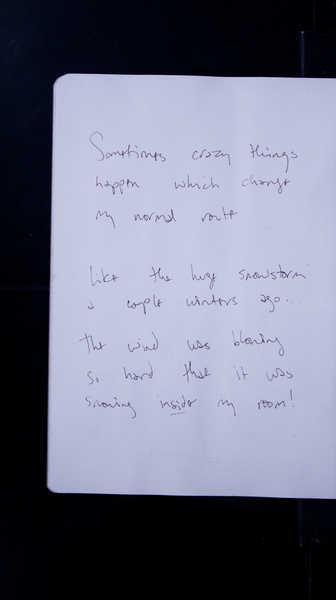 Sometimes crazy things
happen which change
my normal route
like the huge snowstorm
a couple winters ago..
The wind was blowing
so hard that it was
snowing inside my room!